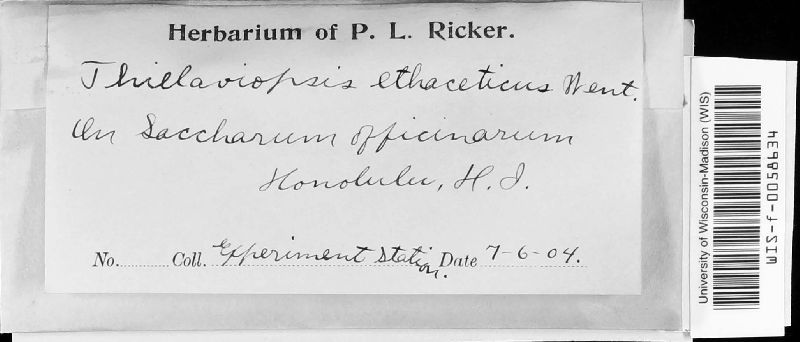 Herbarium of P. L. Ricker.
Thielaviopsis ethaceticus Went.
On Saccharum officinarum
Honolulu, H. I.
No. Coll. Experiment Station. Date 7-6-04.
University of Wisconsin-Madison (WIS)
WIS-f-0058634